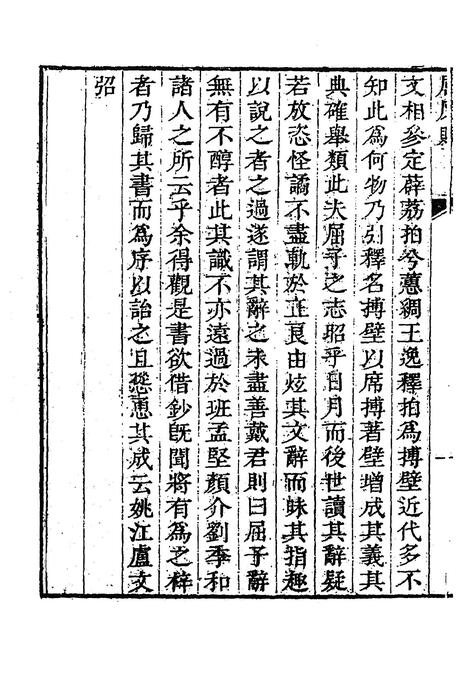 文相參定薜荔拍兮蕙綢王逸釋拍爲搏壁近代多不
知此爲何物乃引釋名搏壁以席搏著壁增成其義其
典確舉類此夫屈子之志昭乎日月而後世讀其辭疑
若放恣怪譎不盡軌於正良由炫其文辭而昧其指趣
以說之者之過遂謂其辭之未盡善戴君則曰屈子辭
無有不醇者此其識不亦遠過於班孟堅顏介劉季和
諸人之所云乎余得觀是書欲借鈔旣聞將有爲之梓
者乃歸其書而爲序以詒之且慫恿其成云姚江盧文
弨